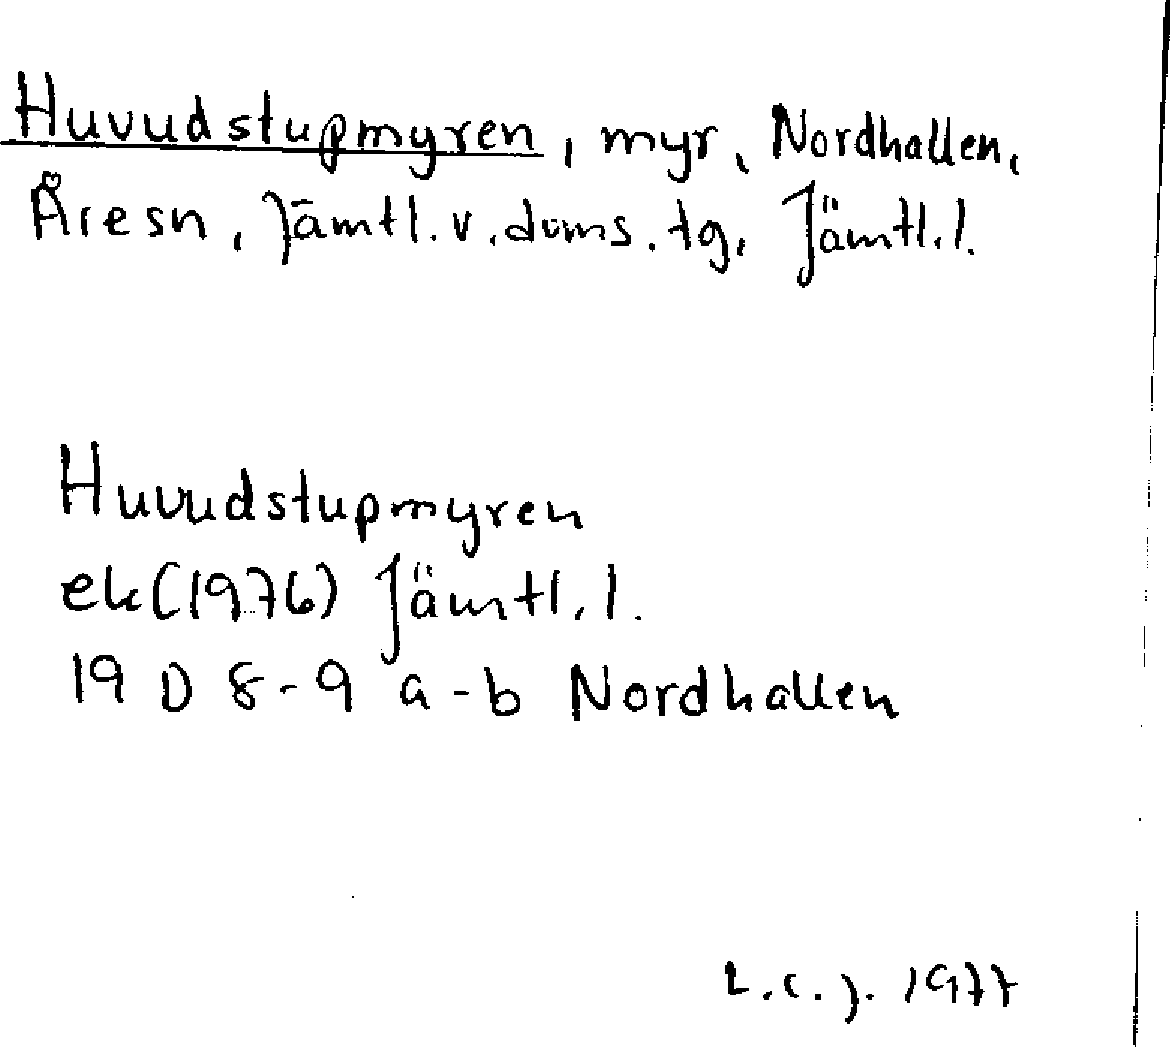 Huvudstupmyren, myr, Nordhallen,
Åresn, Jämtl. v. doms. tg, Jämtl. l.
Huvudstupmyren
ek (1976) Jämtl. l.
19 D 8-9 a-b Nordhallen
L.C.J. 1977